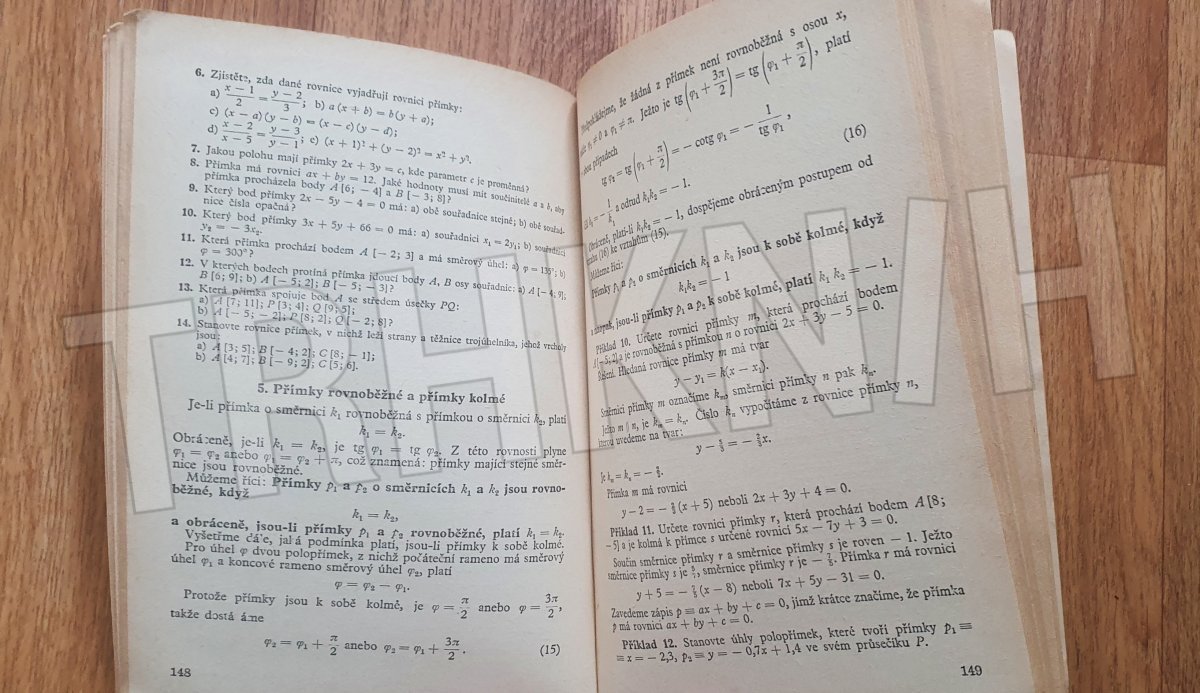 6. Zjistěte, zda dané rovnice vyjadřují rovnici přímky:
a) x − 1 / 2 = y − 2 / 3 ; b) a (x + b) = b(y + a);
c) (x − a)(y − b) = (x − c)(y − d);
d) x − 2 / x − 5 = y − 3 / y − 1 ; e) (x + 1)² + (y − 2)² = x² + y².
7. Jakou polohu mají přímky 2x + 3y = c, kde parametr c je proměnná?
8. Přímka má rovnici ax + by = 12. Jaké hodnoty musí mít součinitelé a a b, aby
přímka procházela body A [6; − 4] a B [− 3; 8]?
9. Který bod přímky 2x − 5y − 4 = 0 má: a) obě souřadnice stejné; b) obě souřad-
nice čísla opačná?
10. Který bod přímky 3x + 5y + 66 = 0 má: a) souřadnici x₁ = 2y₁; b) souřadnici
y₂ = − 3x₂.
11. Která přímka prochází bodem A [− 2; 3] a má směrový úhel: a) φ = 135°; b)
φ = 300°?
12. V kterých bodech protíná přímka jdoucí body A, B osy souřadnic: a) A [− 4; 9];
B [6; 9]; b) A [− 5; 2]; B [− 5; − 3]?
13. Která přímka spojuje bod A se středem úsečky PQ:
a) A [7; 11]; P [3; 4]; Q [9; 5];
b) A [− 5; − 2]; P [8; 2]; Q [− 2; 8]?
14. Stanovte rovnice přímek, v nichž leží strany a těžnice trojúhelníka, jehož vrcholy
jsou:
a) A [3; 5]; B [− 4; 2]; C [8; − 1];
b) A [4; 7]; B [− 9; 2]; C [5; 6].
5. Přímky rovnoběžné a přímky kolmé
Je-li přímka o směrnici k₁ rovnoběžná s přímkou o směrnici k₂, platí
k₁ = k₂.
Obráceně, je-li k₁ = k₂, je tg φ₁ = tg φ₂. Z této rovnosti plyne
φ₁ = φ₂ anebo φ₁ = φ₂ + π, což znamená: přímky mající stejné směr-
nice jsou rovnoběžné.
Můžeme říci: Přímky p₁ a p₂ o směrnicích k₁ a k₂ jsou rovno-
běžné, když
k₁ = k₂,
a obráceně, jsou-li přímky p₁ a p₂ rovnoběžné, platí k₁ = k₂.
Vyšetřme dále, jaká podmínka platí, jsou-li přímky k sobě kolmé.
Pro úhel φ dvou polopřímek, z nichž počáteční rameno má směrový
úhel φ₁ a koncové rameno směrový úhel φ₂, platí
φ = φ₂ − φ₁.
Protože přímky jsou k sobě kolmé, je φ = π / 2 anebo φ = 3π / 2 ,
takže dostáváme
φ₂ = φ₁ + π / 2 anebo φ₂ = φ₁ + 3π / 2 . (15)
148
že žádná z přímek není rovnoběžná s osou x,
φ₁ ≠ 0 a φ₁ ≠ π. Ježto je tg (φ₁ + 3π / 2) = tg (φ₁ + π / 2) , platí
v obou případech
tg φ₂ = tg (φ₁ + π / 2) = − cotg φ₁ = − 1 / tg φ₁ ,
(16)
k₂ = − 1 / k₁ a odtud k₁k₂ = − 1.
Obráceně, platí-li k₁k₂ = − 1, dospějeme obráceným postupem od
(16) ke vztahům (15).
Můžeme říci:
Přímky p₁ a p₂ o směrnicích k₁ a k₂ jsou k sobě kolmé, když
k₁k₂ = − 1
a naopak, jsou-li přímky p₁ a p₂ k sobě kolmé, platí k₁ k₂ = − 1.
Příklad 10. Určete rovnici přímky m, která prochází bodem
A[− 5; 2] a je rovnoběžná s přímkou n o rovnici 2x + 3y − 5 = 0.
Řešení. Hledaná rovnice přímky m má tvar
y − y₁ = k(x − x₁).
Směrnici přímky m označíme kₘ, směrnici přímky n pak kₙ.
Ježto m ∥ n, je kₘ = kₙ. Číslo kₙ vypočítáme z rovnice přímky n,
kterou uvedeme na tvar:
y − 5/3 = − 2/3x.
Je kₘ = kₙ = − 2/3.
Přímka m má rovnici
y − 2 = − 2/3 (x + 5) neboli 2x + 3y + 4 = 0.
Příklad 11. Určete rovnici přímky r, která prochází bodem A [8;
− 5] a je kolmá k přímce s určené rovnicí 5x − 7y + 3 = 0.
Součin směrnice přímky r a směrnice přímky s je roven − 1. Ježto
směrnice přímky s je 5/7, směrnice přímky r je − 7/5. Přímka r má rovnici
y + 5 = − 7/5 (x − 8) neboli 7x + 5y − 31 = 0.
Zavedeme zápis p ≡ ax + by + c = 0, jímž krátce značíme, že přímka
p má rovnici ax + by + c = 0.
Příklad 12. Stanovte úhly polopřímek, které tvoří přímky p₁ ≡
≡ x = − 2,3, p₂ ≡ y = − 0,7x + 1,4 ve svém průsečíku P.
149
TRHKNIH